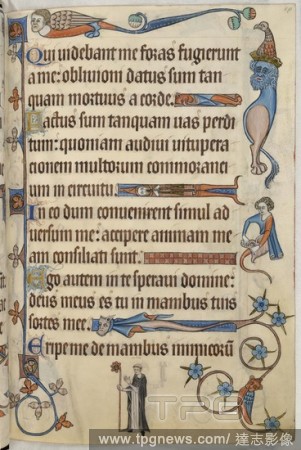 Qui videbant me foras fugierunt
a me: oblivioni datus sum tan
quam mortuus a corde.
Factus sum tanquam vas perdi
tum: quoniam audivi vitupera
cionem multorum commoranci
um in circuitu
In eo dum convenirent simul ad
versum me: accipere animam me
am consiliati sunt.
Ego autem in te speravi domine:
deus meus es tu in manibus tuis
sortes mee.
Eripe me de manibus inimicorū
TPG
www.tpgnews.com/ 達志影像